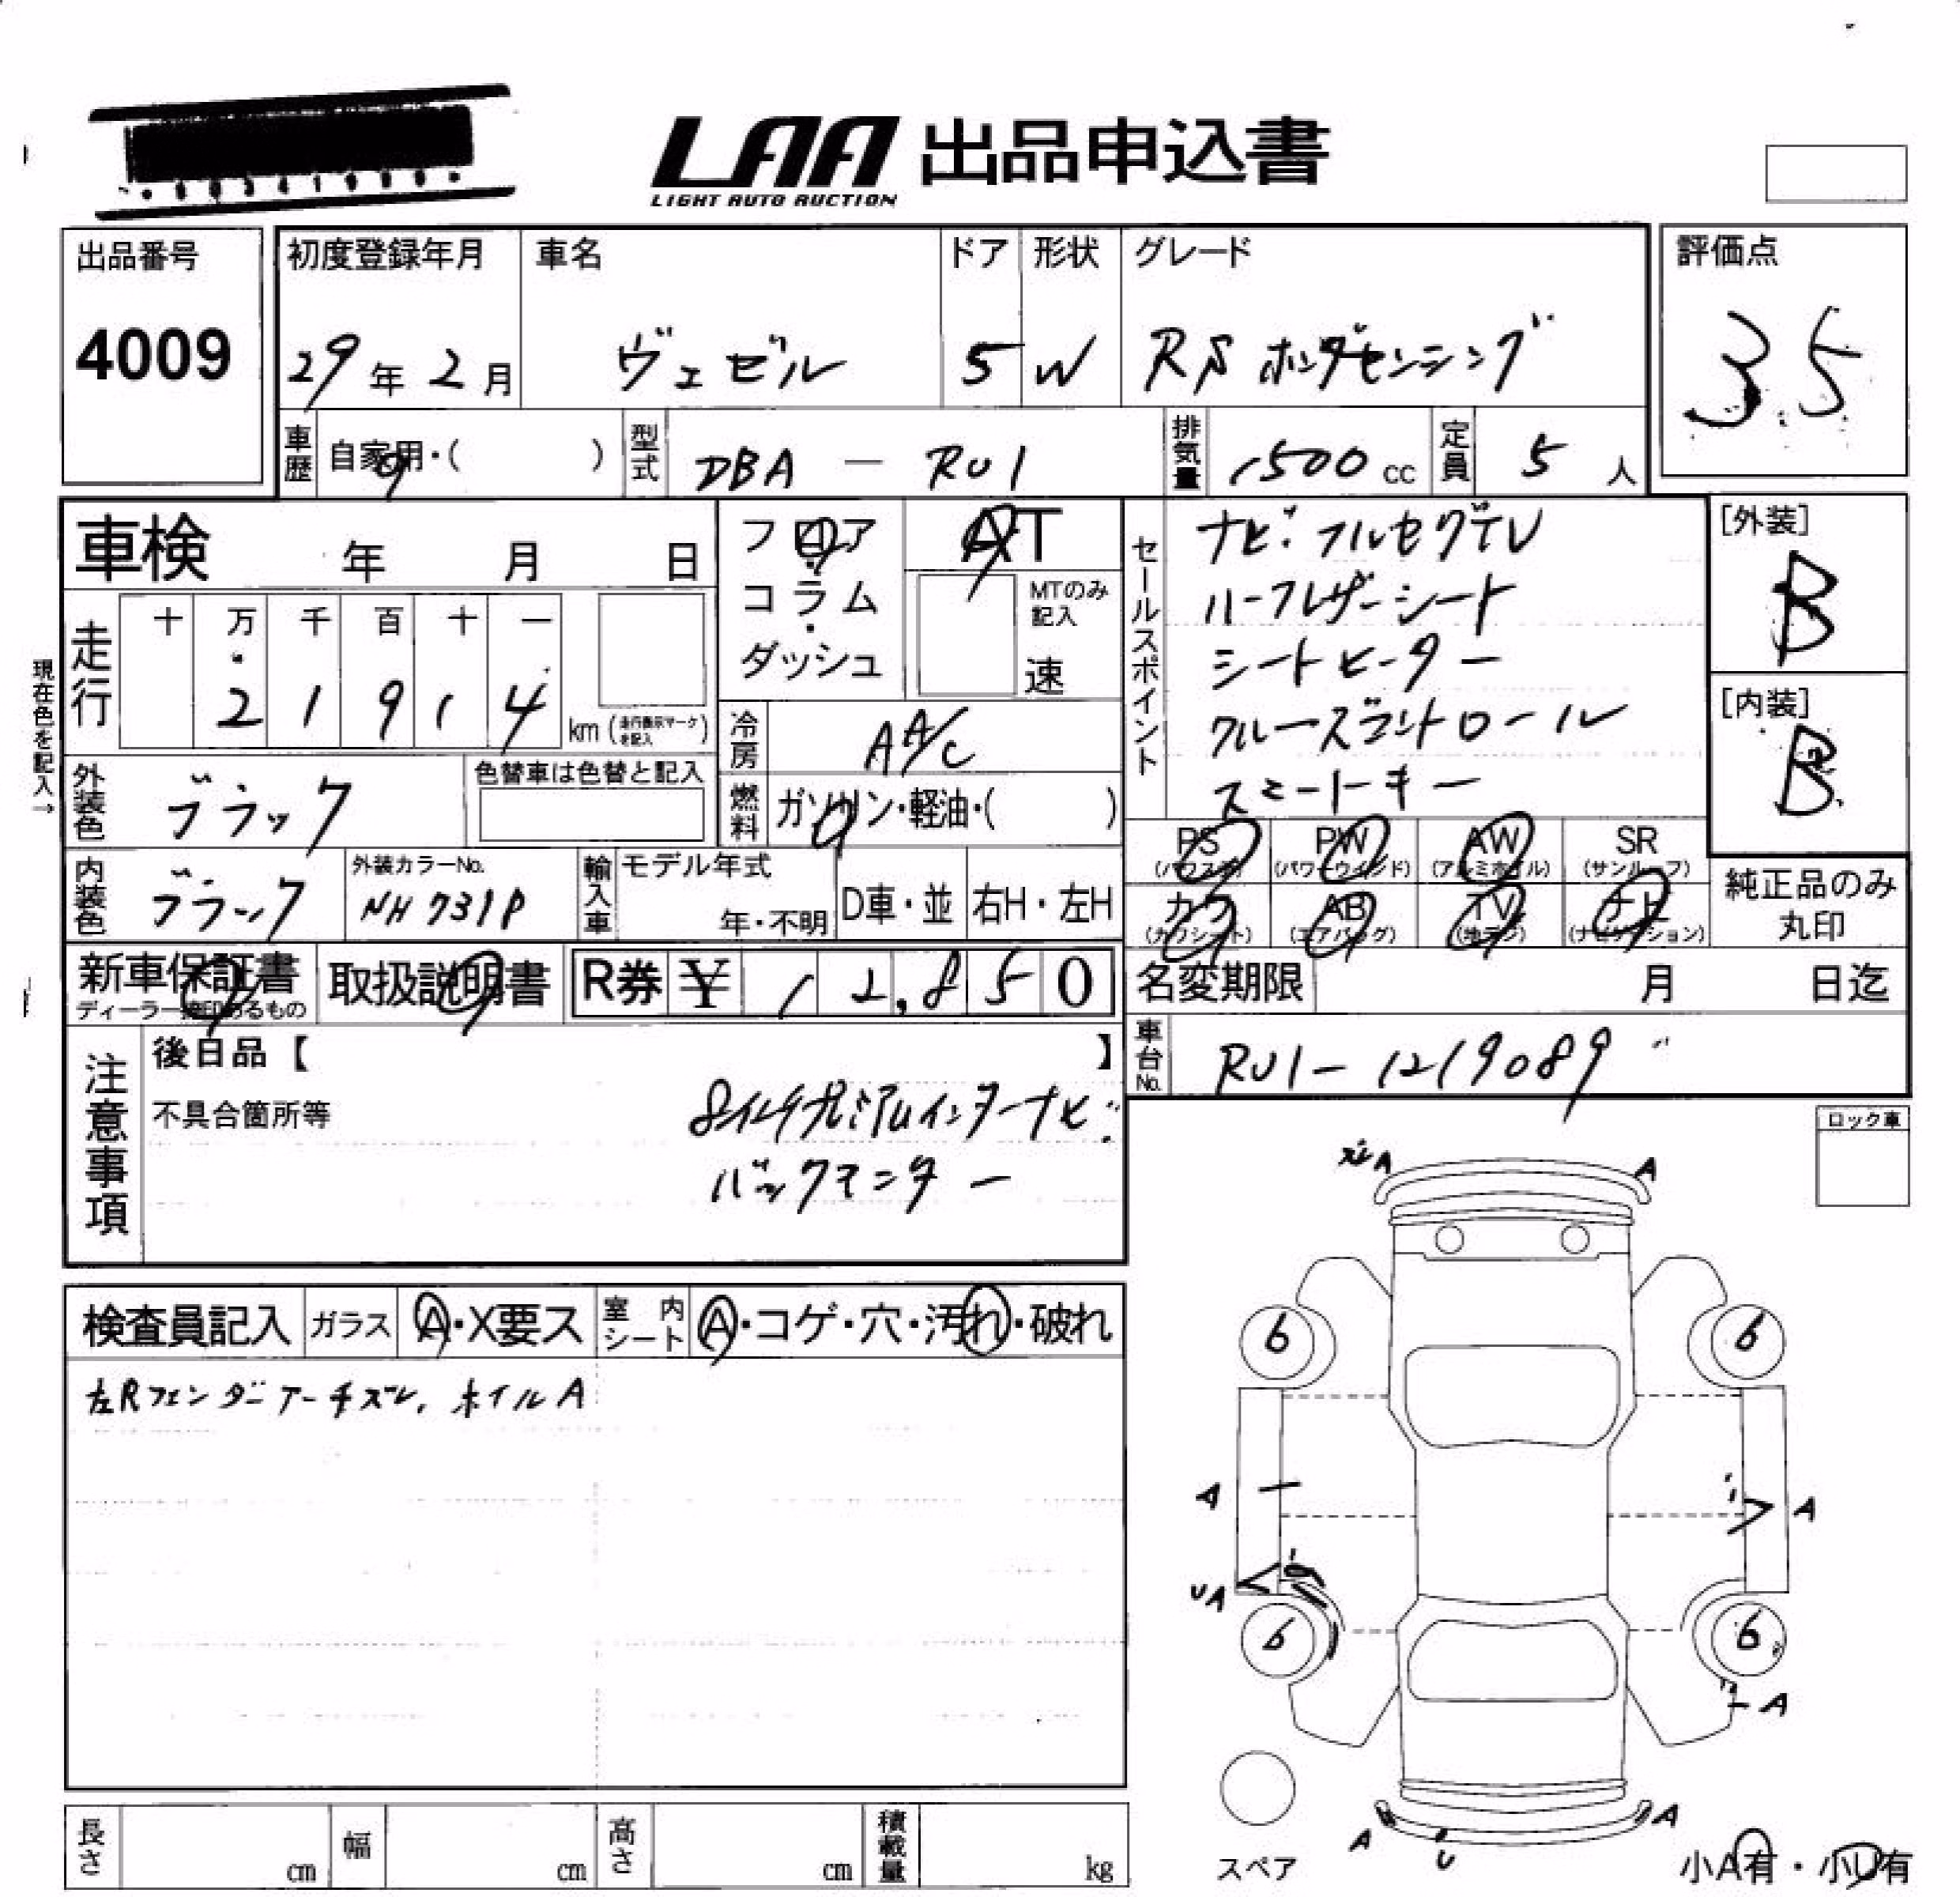 LAA 出品申込書
LIGHT AUTO AUCTION
出品番号
4009
初度登録年月
29年 2月
車名
ヴェゼル
ドア
5
形状
W
グレード
RS ホンダセンシング
評価点
3.5
車歴 自家用・( )
型式 DBA — RU1
排気量 1500 cc
定員 5 人
車検 年 月 日
フロア・コラム・ダッシュ
AT
MTのみ記入
速
セールスポイント
ナビ・フルセグTV
ハーフレザーシート
シートヒーター
クルーズコントロール
スマートキー
[外装]
B
[内装]
B
現在色を記入→
走行
十 万 千 百 十 一
2 1 9 1 4
km (走行表示マークを記入)
冷房 AA/C
外装色 ブラック
色替車は色替と記入
燃料 ガソリン・軽油・( )
PS (パワステ)
PW (パワーウィンド)
AW (アルミホイル)
SR (サンルーフ)
内装色 ブラック
外装カラーNo.
NH731P
輸入車
モデル年式
年・不明
D車・並
右H・左H
カワ (カワシート)
AB (エアバッグ)
TV (地デジ)
ナビ (ナビゲーション)
純正品のみ
丸印
新車保証書
ディーラー捺印あるもの
取扱説明書
R券 ¥ 12,850
名変期限 月 日迄
注意事項
後日品【 】
不具合箇所等
8インチプレミアムインターナビ
バックモニター
車台No. RU1-1219089
ロック車
ズレA
A
6
6
A
A
UA
6
6
A
A
U
A
スペア
小A有・小U有
検査員記入
ガラス
A・X要ス
室内シート
A・コゲ・穴・汚れ・破れ
左Rフェンダーアーチズレ、ホイルA
長さ cm
幅 cm
高さ cm
積載量 kg